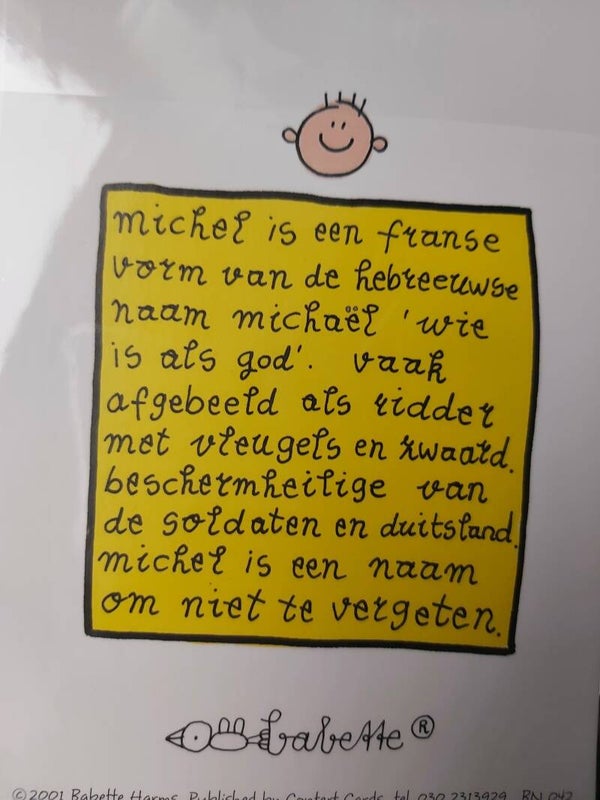 michel is een franse
vorm van de hebreeuwse
naam michaël 'wie
is als god'. vaak
afgebeeld als ridder
met vleugels en zwaard.
beschermheilige van
de soldaten en duitsland.
michel is een naam
om niet te vergeten.
babette ®
©2001 Babette Harms. Published by Contact Cards. tel 030 2313929 RN 042